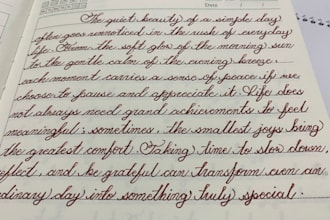 Date
The quiet beauty of a simple day
often goes unnoticed in the rush of everyday
life. From the soft glow of the morning sun
to the gentle calm of the evening breeze,
each moment carries a sense of peace if we
choose to pause and appreciate it. Life does
not always need grand achievements to feel
meaningful; sometimes, the smallest joys bring
the greatest comfort. Taking time to slow down,
eflect, and be grateful can transform even an
dinary day into something truly special.